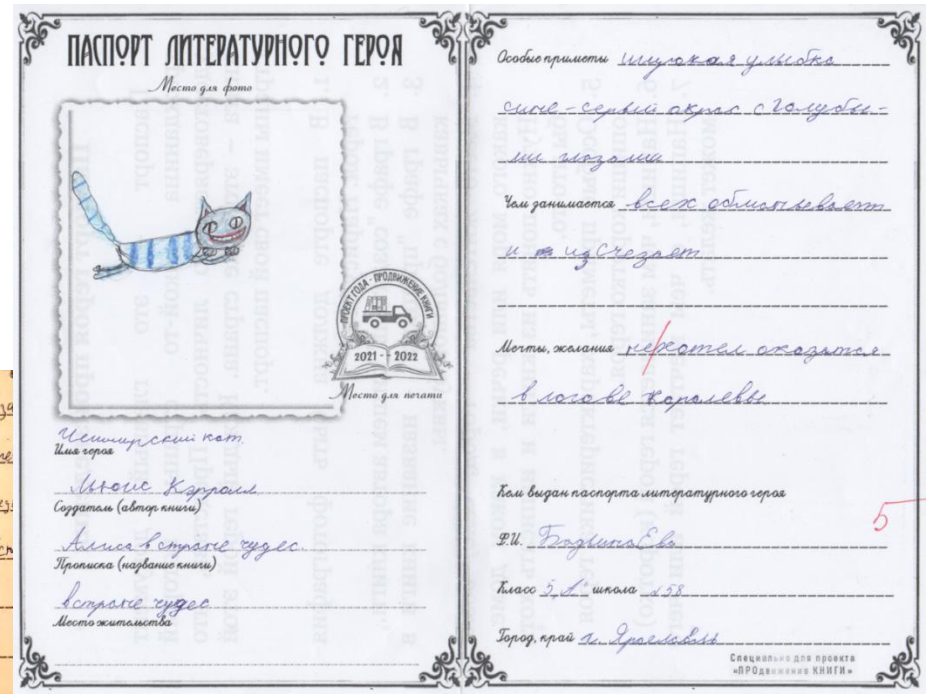 ПАСПОРТ ЛИТЕРАТУРНОГО ГЕРОЯ
Место для фото
ПРОЕКТ ГОДА - ПРОДВИЖЕНИЕ КНИГИ
2021 - 2022
Место для печати
Чеширский кот.
Имя героя
Льюис Кэрролл
Создатель (автор книги)
Алиса в стране чудес.
Прописка (название книги)
в стране чудес
Место жительства
Особые приметы широкая улыбка
сине-серый окрас с голубы-
ми глазами
Чем занимается всех обманывает
и изсчезает
Мечты, желания не хотел оказатся
в логове королевы
Кем выдан паспорт литературного героя
Ф.И. Ева
5
Класс 5 "А" школа №58
Город, край г. Ярославль
Специально для проекта
«ПРОдвижение КНИГИ»